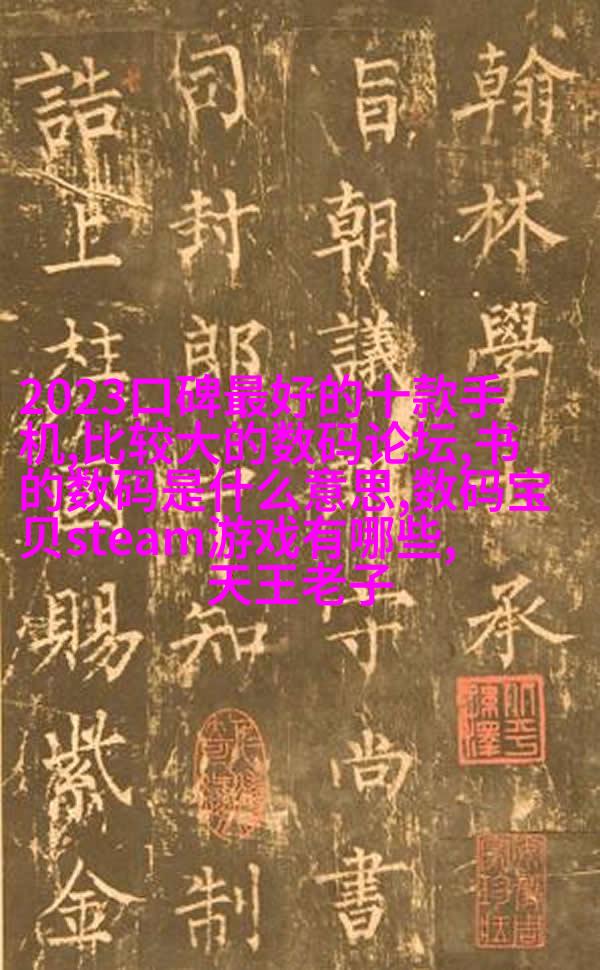 翰林學承
旨朝議守尚書
司封郎知制
誥上柱賜紫金
2023口碑最好的十款手
机,比较大的数码论坛,书
的数码是什么意思,数码宝
贝steam游戏有哪些,
天王老子